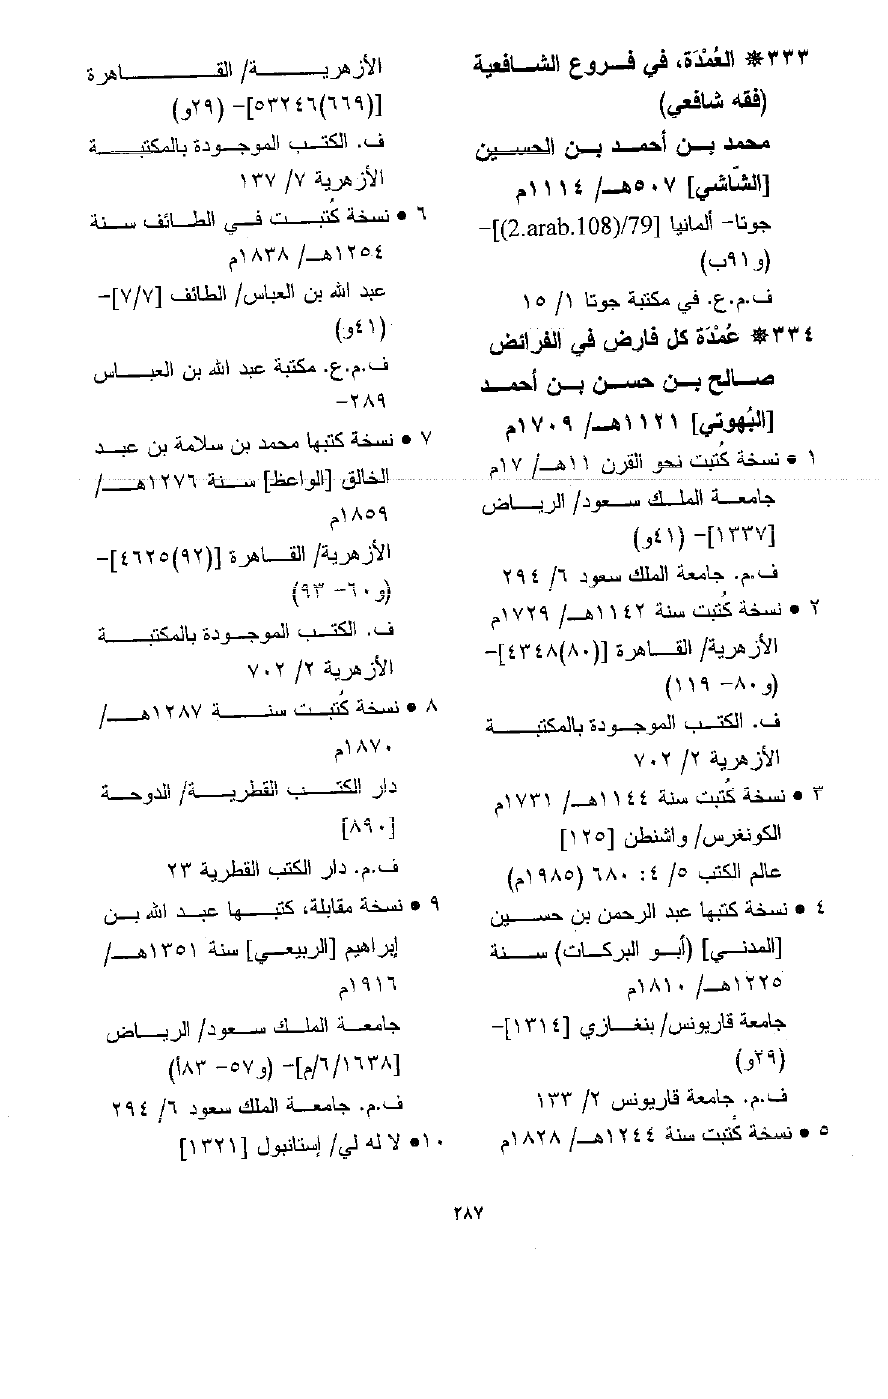 ٣٣٣* العُمْدَة، في فروع الشافعية
(فقه شافعي)
محمد بن أحمد بن الحسين
[الشّاشي] ٥٠٧هـ/ ١١١٤م
جوتا- ألمانيا [79/(2.arab.108)]-
(و٩١ب)
ف.م.ع. في مكتبة جوتا ١/ ١٥
٣٣٤* عُمْدَة كل فارض في الفرائض
صالح بن حسن بن أحمد
[البُهوتي] ١١٢١هـ/ ١٧٠٩م
١ • نسخة كُتبت نحو القرن ١١هـ/ ١٧م
جامعة الملك سعود/ الرياض
[١٣٣٧]- (٤١و)
ف.م. جامعة الملك سعود ٦/ ٢٩٤
٢ • نسخة كُتبت سنة ١١٤٢هـ/ ١٧٢٩م
الأزهرية/ القاهرة [(٨٠)٤٣٤٨]-
(و٨٠- ١١٩)
ف. الكتب الموجودة بالمكتبة
الأزهرية ٢/ ٧٠٢
٣ • نسخة كُتبت سنة ١١٤٤هـ/ ١٧٣١م
الكونغرس/ واشنطن [١٢٥]
عالم الكتب ٥/ ٤: ٦٨٠ (١٩٨٥م)
٤ • نسخة كتبها عبد الرحمن بن حسين
[المدني] (أبو البركات) سنة
١٢٢٥هـ/ ١٨١٠م
جامعة قاريونس/ بنغازي [١٣١٤]-
(٢٩و)
ف.م. جامعة قاريونس ٢/ ١٣٣
٥ • نسخة كُتبت سنة ١٢٤٤هـ/ ١٨٢٨م
الأزهرية/ القاهرة
[(٦٦٩)٥٣٢٤٦]- (٢٩و)
ف. الكتب الموجودة بالمكتبة
الأزهرية ٧/ ١٣٧
٦ • نسخة كُتبت في الطائف سنة
١٢٥٤هـ/ ١٨٣٨م
عبد الله بن العباس/ الطائف [٧/٧]-
(٤١و)
ف.م.ع. مكتبة عبد الله بن العباس
٢٨٩-
٧ • نسخة كتبها محمد بن سلامة بن عبد
الخالق [الواعظ] سنة ١٢٧٦هـ/
١٨٥٩م
الأزهرية/ القاهرة [(٩٢)٤٦٢٥]-
(و٦٠- ٩٣)
ف. الكتب الموجودة بالمكتبة
الأزهرية ٢/ ٧٠٢
٨ • نسخة كُتبت سنة ١٢٨٧هـ/
١٨٧٠م
دار الكتب القطرية/ الدوحة
[٨٩٠]
ف.م. دار الكتب القطرية ٢٣
٩ • نسخة مقابلة، كتبها عبد الله بن
إبراهيم [الربيعي] سنة ١٣٥١هـ/
١٩١٦م
جامعة الملك سعود/ الرياض
[١٦٣٨/٦/م]- (و٥٧- ٨٣أ)
ف.م. جامعة الملك سعود ٦/ ٢٩٤
١٠• لا له لي/ إستانبول [١٣٢١]
٢٨٧